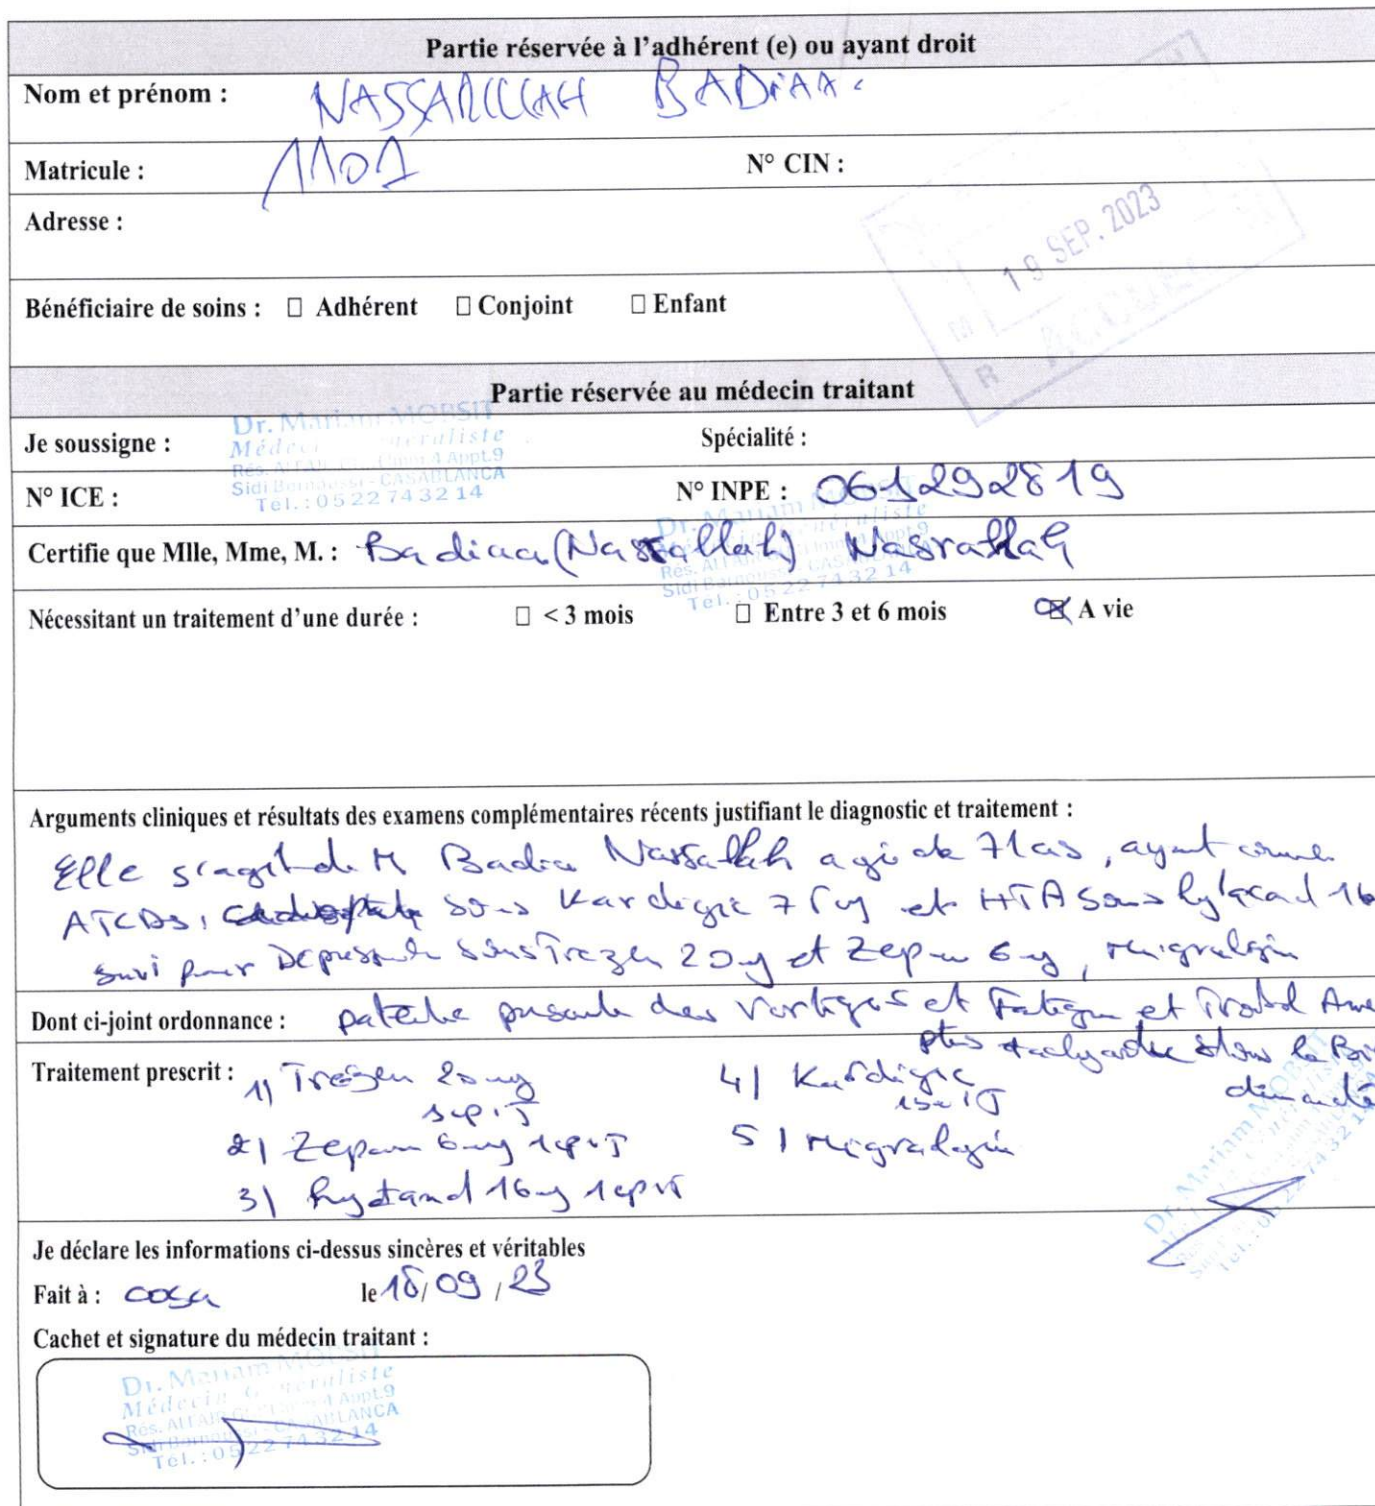 Partie réservée à l'adhérent (e) ou ayant droit
Nom et prénom : NASSARLLAH BADIAA.
Matricule : 1101 N° CIN :
Adresse :
19 SEP. 2023
Bénéficiaire de soins : □ Adhérent □ Conjoint □ Enfant
Partie réservée au médecin traitant
Dr. Mariam MORSIT
Médecin Généraliste
Appt.9
Sidi Bernoussi - CASABLANCA
Tél. : 05 22 74 32 14
Je soussigne : Spécialité :
N° ICE : N° INPE : 061292819
Certifie que Mlle, Mme, M. : Badiaa (Nassallah) Nasrallah
Nécessitant un traitement d'une durée : □ < 3 mois □ Entre 3 et 6 mois ☒ A vie
Arguments cliniques et résultats des examens complémentaires récents justifiant le diagnostic et traitement :
Elle s'agit de M Badia Nassallah agé de 71 ans, ayant comme
ATCDs, sous Kardegic 75mg et HTA sous 16
suivi pour sous Trezen 20mg et Zepam 6mg, migralgin
Dont ci-joint ordonnance : patiente présente des vertiges et Fatigue et
Traitement prescrit : 1) Trezen 20mg
1cp/J
2) Zepam 6mg 1cp/J
3) 16mg 1cp/J
4) Kardégic
5) migralgin
Je déclare les informations ci-dessus sincères et véritables
Fait à : casa le 18/09/23
Cachet et signature du médecin traitant :
Dr. Mariam MORSIT
Médecin Généraliste
Appt.9
CASABLANCA
Tél. : 05 22 74 32 14